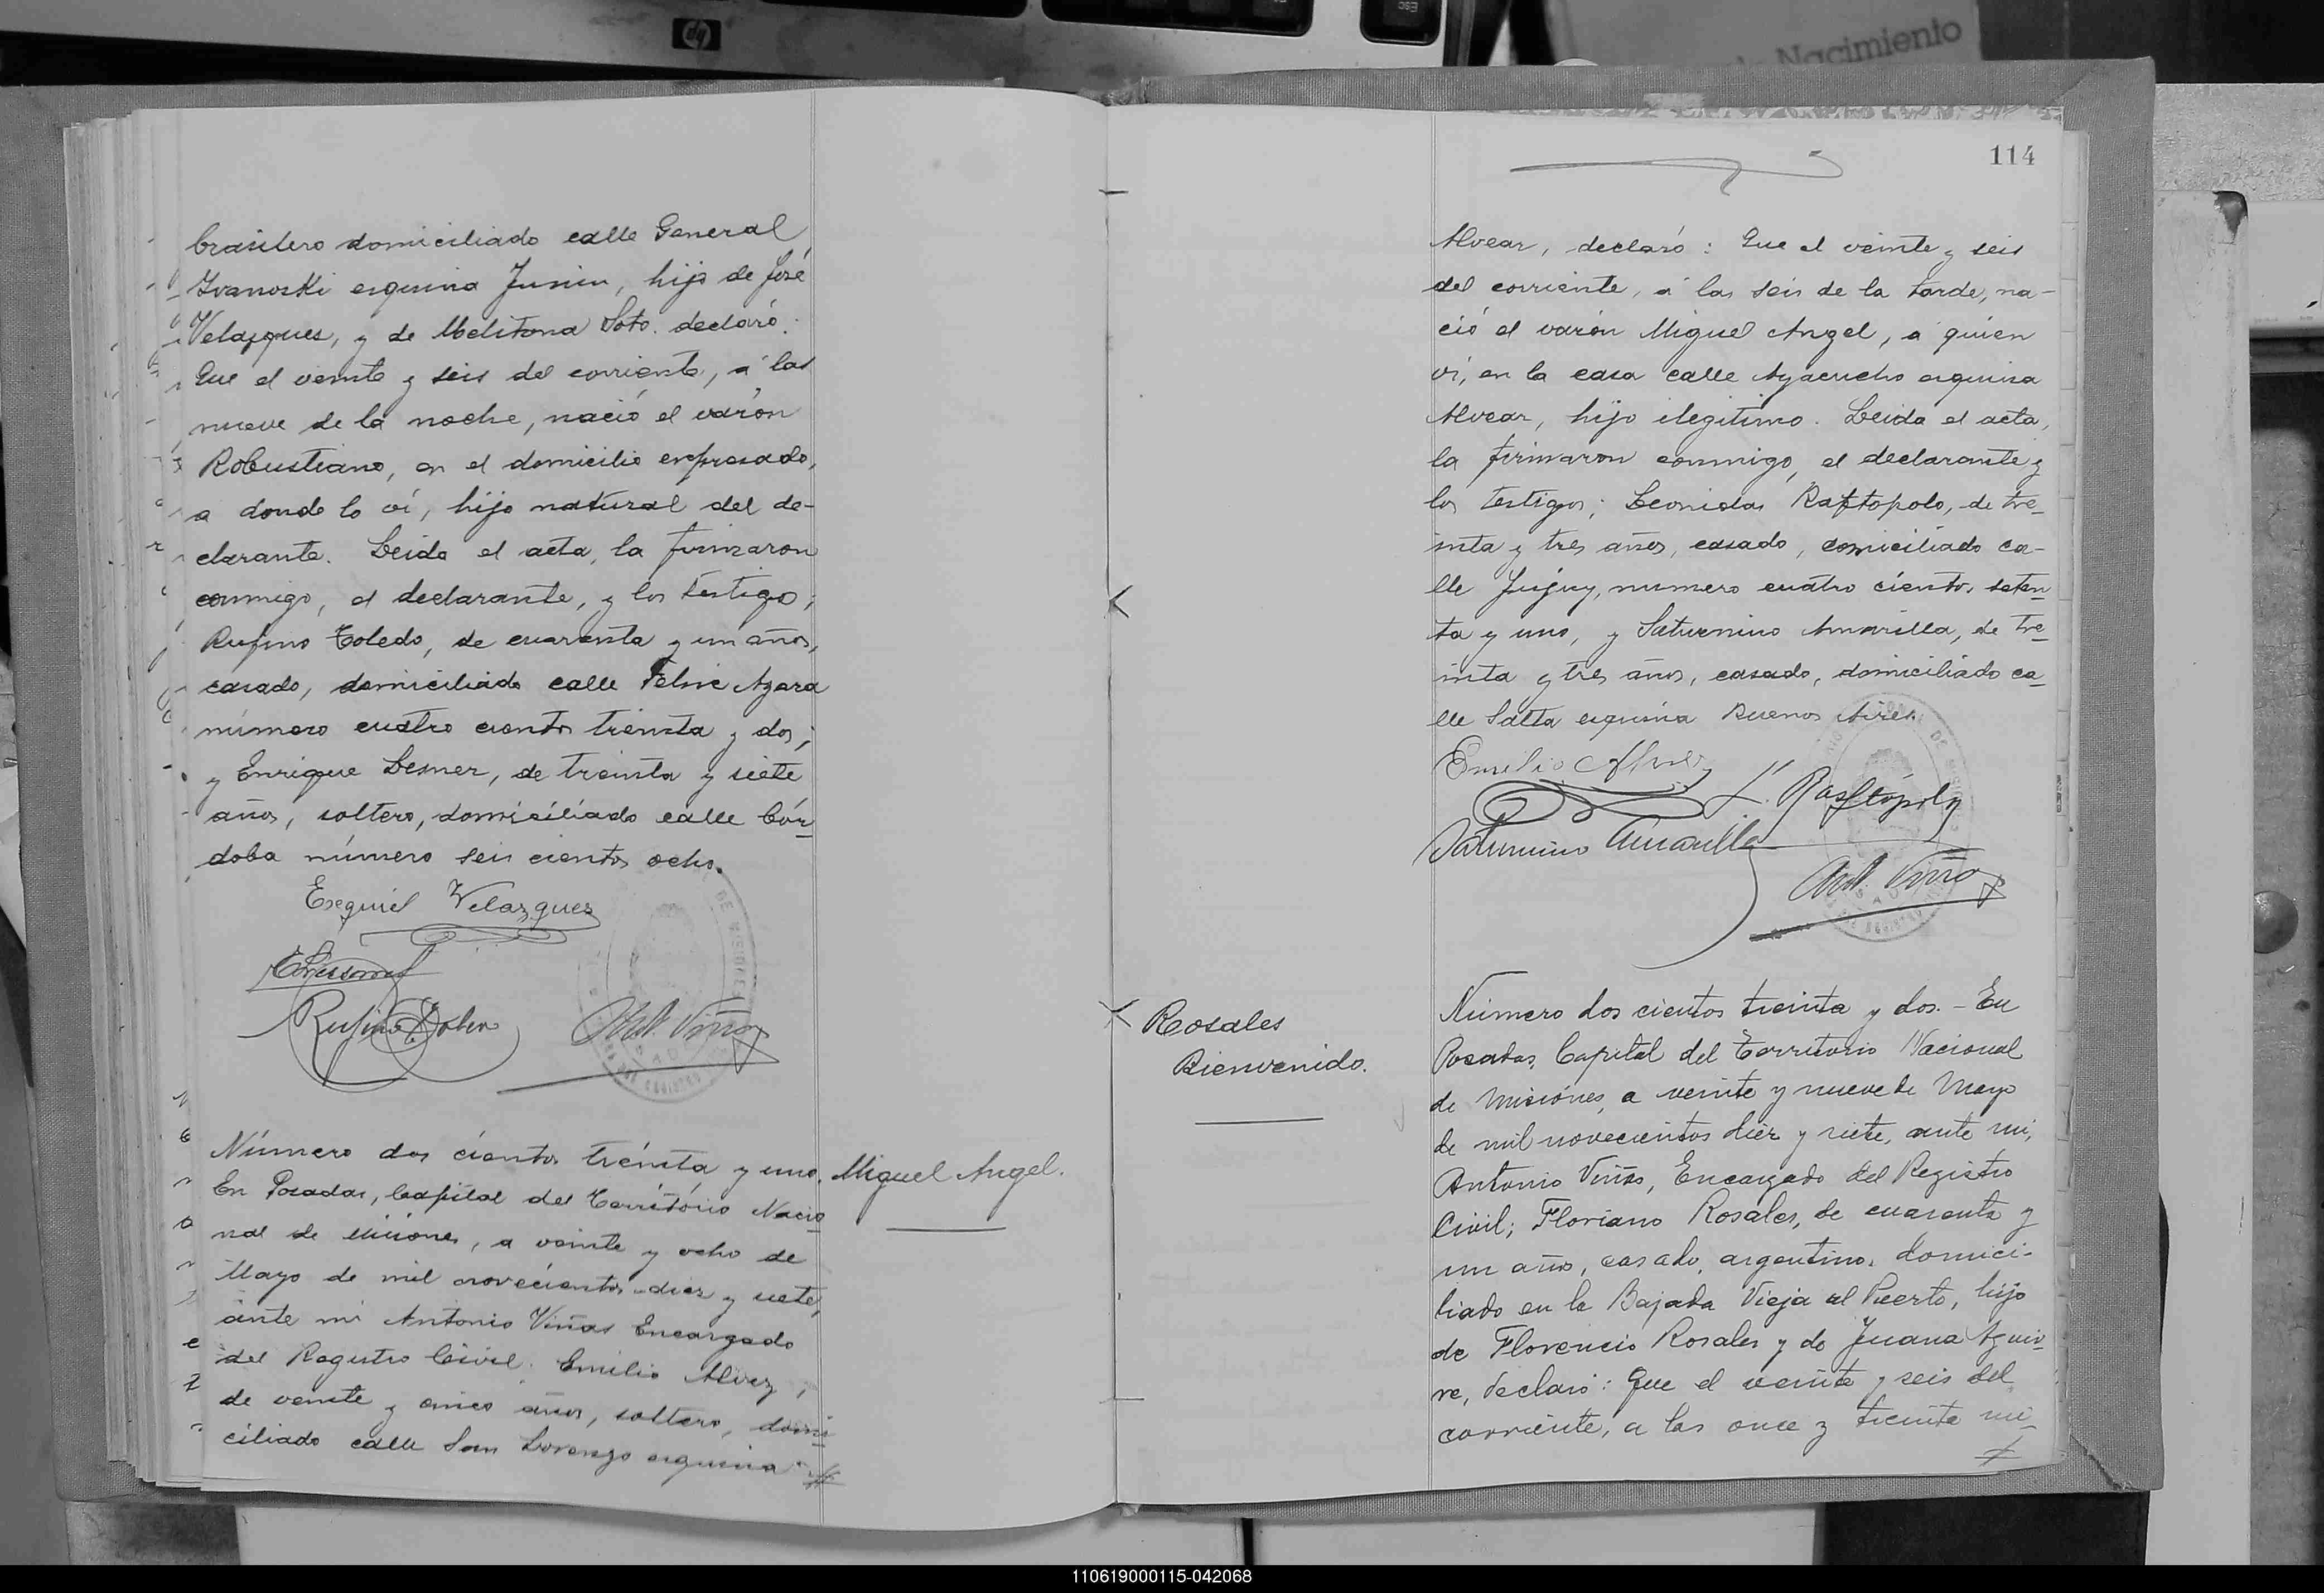 hp
esc
Nacimiento
brasilero domiciliado calle General
Ivanoski esquina Junin, hijo de José
Velazques, y de Melitona Soto. declaró:
Que el veinte y seis del corriente, a las
nueve de la noche, nació el varón
Robustiano, en el domicilio expresado,
a donde lo ví, hijo natural del de-
clarante. Leida el acta, la firmaron
conmigo, el declarante, y los testigos;
Rufino Toledo, de cuarenta y un años,
casado, domiciliado calle Felix Azara
número cuatro cientos treinta y dos;
y Enrique Lesner, de treinta y siete
años, soltero, domiciliado calle Cór-
doba número seis cientos ocho.
Esequiel Velazquez
Ant. Viñas
Número dos cientos treinta y uno.
Miguel Angel.
En Posadas, Capital del Territorio Nacio
nal de Misiones, a veinte y ocho de
Mayo de mil novecientos diez y siete,
ante mi Antonio Viñas Encargado
del Registro Civil: Emilio Alvez,
de veinte y cinco años, soltero, domi-
ciliado calle San Lorenzo esquina
114
Alvear, declaró: Que el veinte y seis
del corriente, á las seis de la tarde, na-
ció el varón Miguel Angel, a quien
ví, en la casa calle Ayacucho esquina
Alvear, hijo ilegitimo. Leida el acta,
la firmaron conmigo, el declarante y
los testigos; Leonidas Raftopolo, de tre-
inta y tres años, casado, domiciliado ca-
lle Jujuy, numero cuatro cientos seten
ta y uno, y Saturnino Amarilla, de tre-
inta y tres años, casado, domiciliado ca-
lle Salta esquina Buenos Aires.
Emilio Alvez
L. Raftopolo
Saturnino Amarilla
Ant. Viñas
Rosales
Bienvenido.
Número dos cientos treinta y dos. - En
Posadas, Capital del Territorio Nacional
de Misiónes, a veinte y nueve de Mayo
de mil novecientos diez y siete, ante mi,
Antonio Viñas, Encargado del Registro
Civil; Floriano Rosales, de cuarenta y
un años, casado, argentino, domici-
liado en la Bajada Vieja al Puerto, hijo
de Florencio Rosales y de Juana Aguir-
re, declaró: Que el veinte y seis del
corriente, a las once y treinta mi-
110619000115-042068